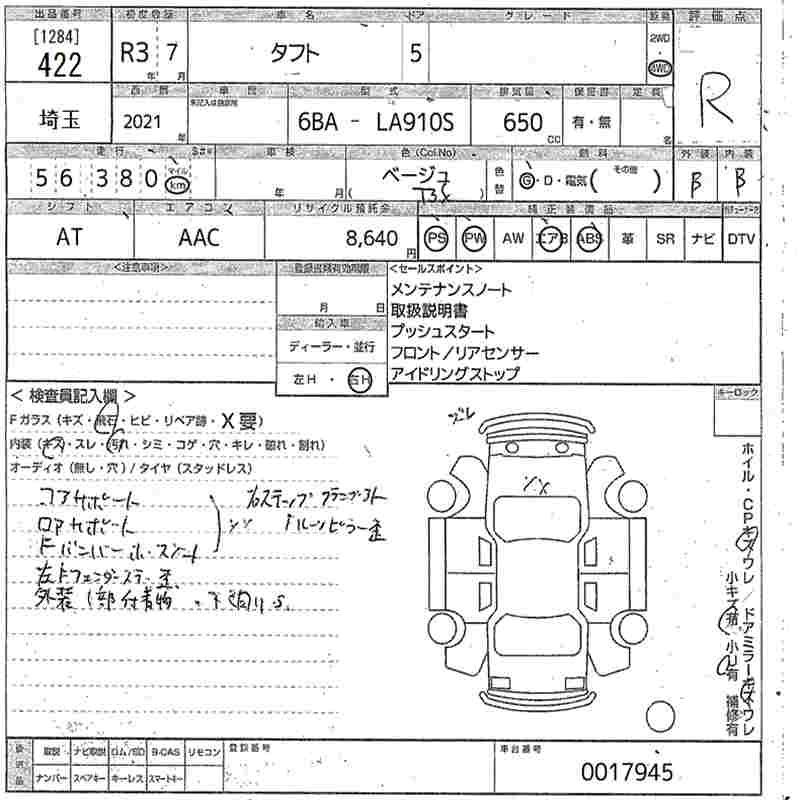 出品番号 初度登録 車名 ドア グレード 駆動 評価点
[1284] 422 R3年 7月 タフト 5 2WD 4WD R
西暦 車歴 型式 排気量 保証書 定員
埼玉 2021年 未記入は自家用 6BA - LA910S 650cc 有・無 名
走行 車検 色(Col.No) 燃料 外装 内装
56380 マイル km 年 月 ベージュ ( T32 ) 色替 G・D・電気( その他 ) B B
シフト エアコン リサイクル預託金 純正装備品
AT AAC 8,640円 PS PW AW エアB ABS 革 SR ナビ DTV
<注意事項> 登録書類有効期限 <セールスポイント>
月 日 メンテナンスノート
取扱説明書
輸入車 プッシュスタート
ディーラー・並行 フロント/リアセンサー
左H・右H アイドリングストップ
<検査員記入欄> キーロック
Fガラス(キズ・飛石・ヒビ・リペア跡・X要)
内装(キズ・スレ・汚れ・シミ・コゲ・穴・キレ・破れ・割れ)
オーディオ(無し・穴)/タイヤ(スタッドレス)
コアサポート 右ステップ
ロアサポート XX
Fバンパー
左Fフェンダーステー歪
外装1部付着物
ズレ
XX
ホイル・CPキズウレ/ドアミラーキズウレ
小キズ有 小U有 補修有
取説 ナビ取説 ロム/SD B-CAS リモコン 登録番号 車台番号
ナンバー スペアキー キーレス スマートキー 0017945